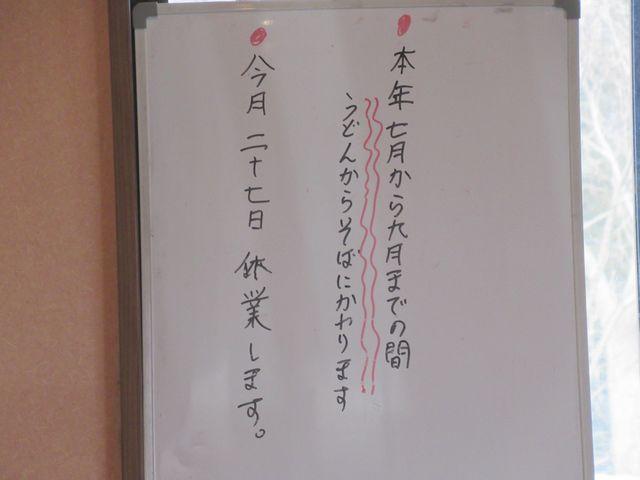 本年七月から九月までの間
うどんからそばにかわります
今月二十七日 休業します。